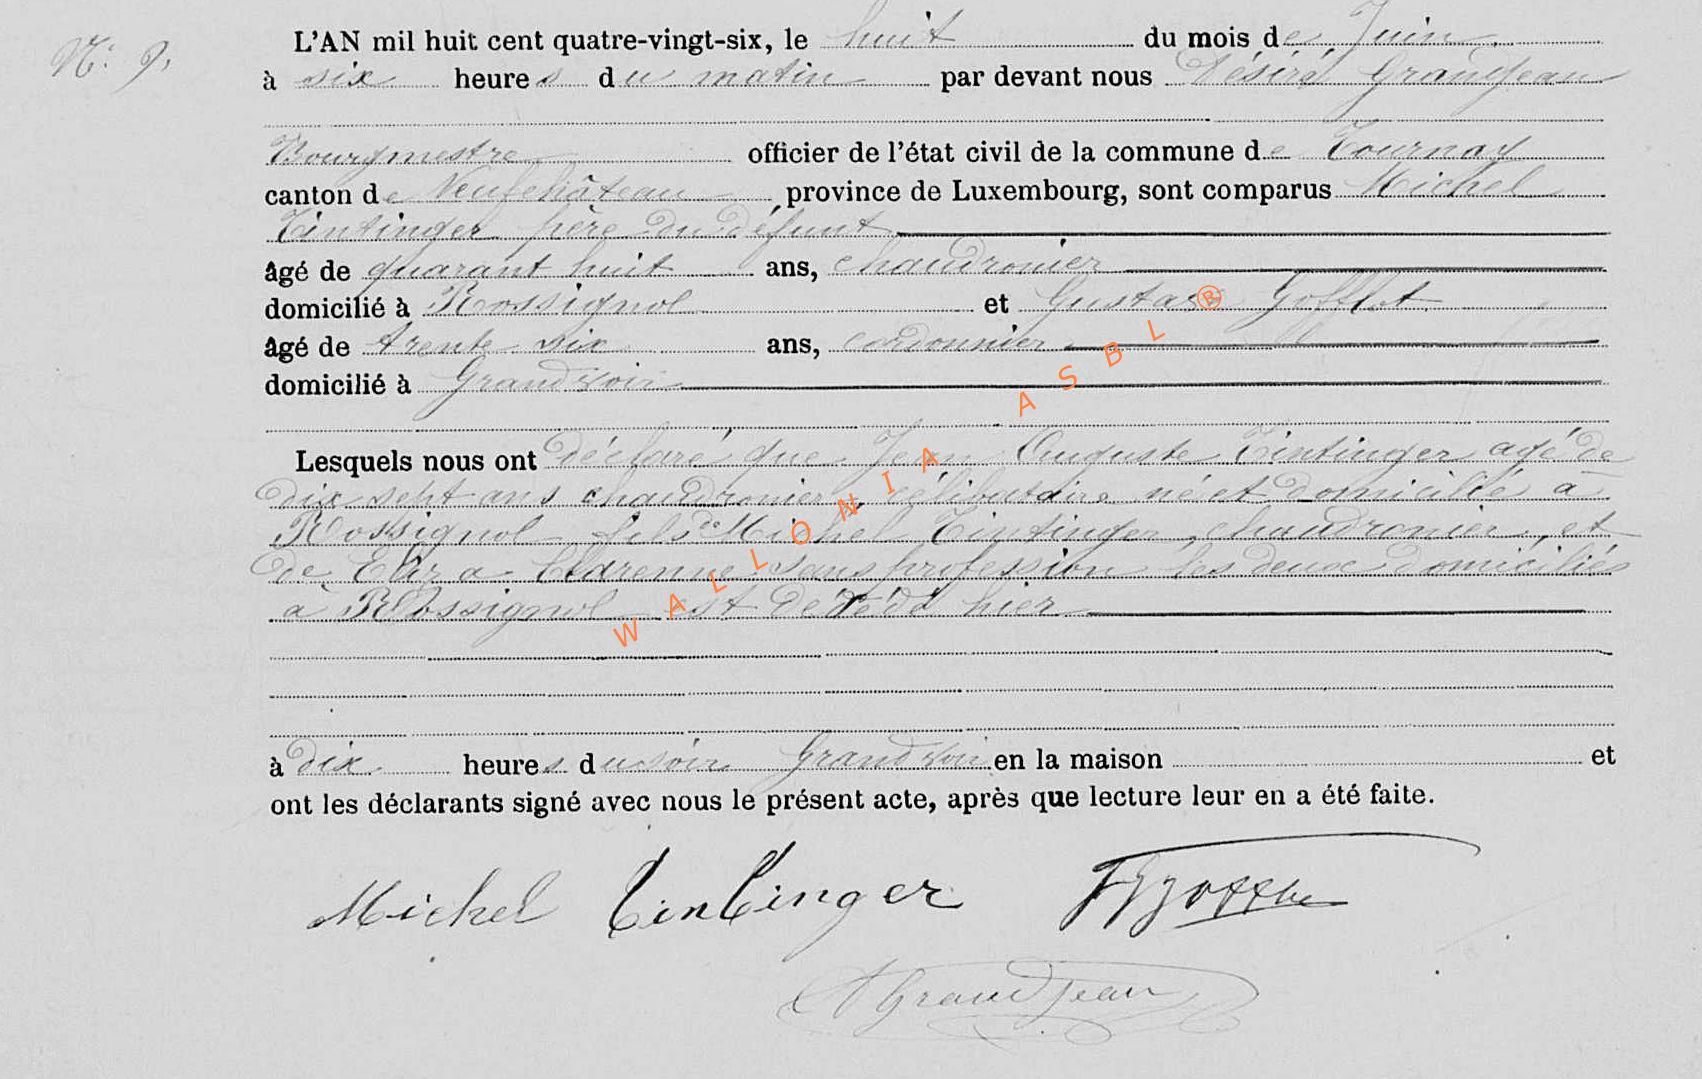 N: 9.
L'AN mil huit cent quatre-vingt-six, le huit du mois de Juin
à six heures du matin par devant nous Désiré Grandjean
Bourgmestre officier de l'état civil de la commune de Tournay
canton de Neufchâteau, province de Luxembourg, sont comparus Michel
Tintinger père du défunt
âgé de quarant huit ans, chaudronier
domicilié à Rossignol et Gustave Gofflot
âgé de trente six ans, cordonnier
domicilié à Grandvoir
Lesquels nous ont déclaré que Jean Auguste Tintinger agé de
dix sept ans chaudronier, célibataire né et domicilié à
Rossignol fils de Michel Tintinger, chaudronier, et
de Eliza Clarenne sans profession les deux domiciliés
à Rossignol est décédé hier
à dix heures du soir Grandvoir en la maison et
ont les déclarants signé avec nous le présent acte, après que lecture leur en a été faite.
Michel Tintinger
DGrandjean
WALLONIA ASBL ®